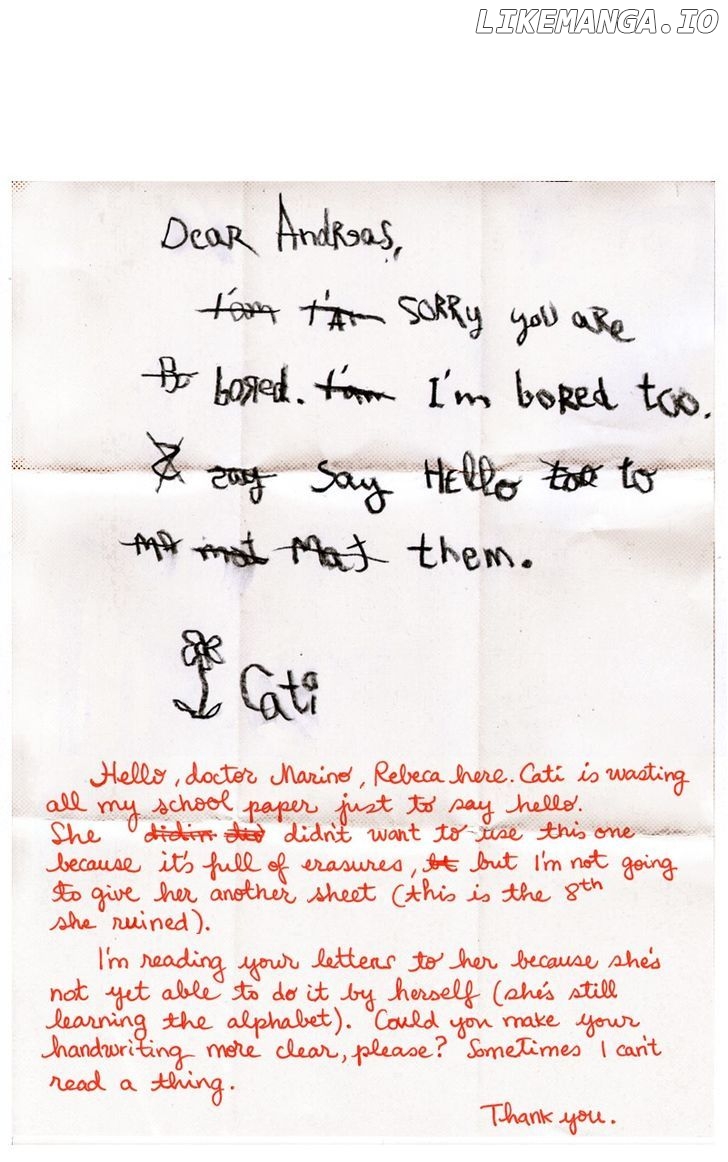 LIKEMANGA.IO
Dear Andreas,
I'am I'Am SORRy you aRe
Bo boRed. I'am I'm boRed too.
Z zay Say HEllo too to
MA mat Mat them.
Cati
Hello, doctor Marino, Rebeca here. Cati is wasting
all my school paper just to say hello.
She didin did didn't want to use this one
because it's full of erasures, bt but I'm not going
to give her another sheet (this is the 8th
she ruined).
I'm reading your letters to her because she's
not yet able to do it by herself (she's still
learning the alphabet). Could you make your
handwriting more clear, please? Sometimes I can't
read a thing.
Thank you.